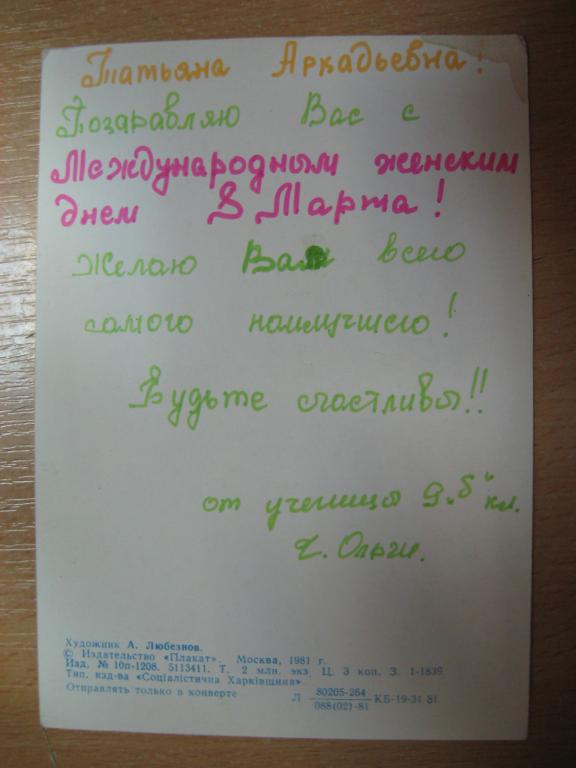 Татьяна Аркадьевна!
Поздравляю Вас с
Международным женским
днем 8 Марта!
Желаю Вам всего
самого наилучшего!
Будьте счастливы!!
от ученицы 9 „Б" кл.
Ч. Ольги.
Художник А. Любезнов.
© Издательство «Плакат». Москва, 1981 г.
Изд. № 10п-1208. 5113411. Т. 2 млн. экз. Ц. 3 коп. З. 1-1839.
Тип. изд-ва «Соціалістична Харківщина»
Отправлять только в конверте
Л 80205-264 / 088(02)-81 КБ-19-31 81